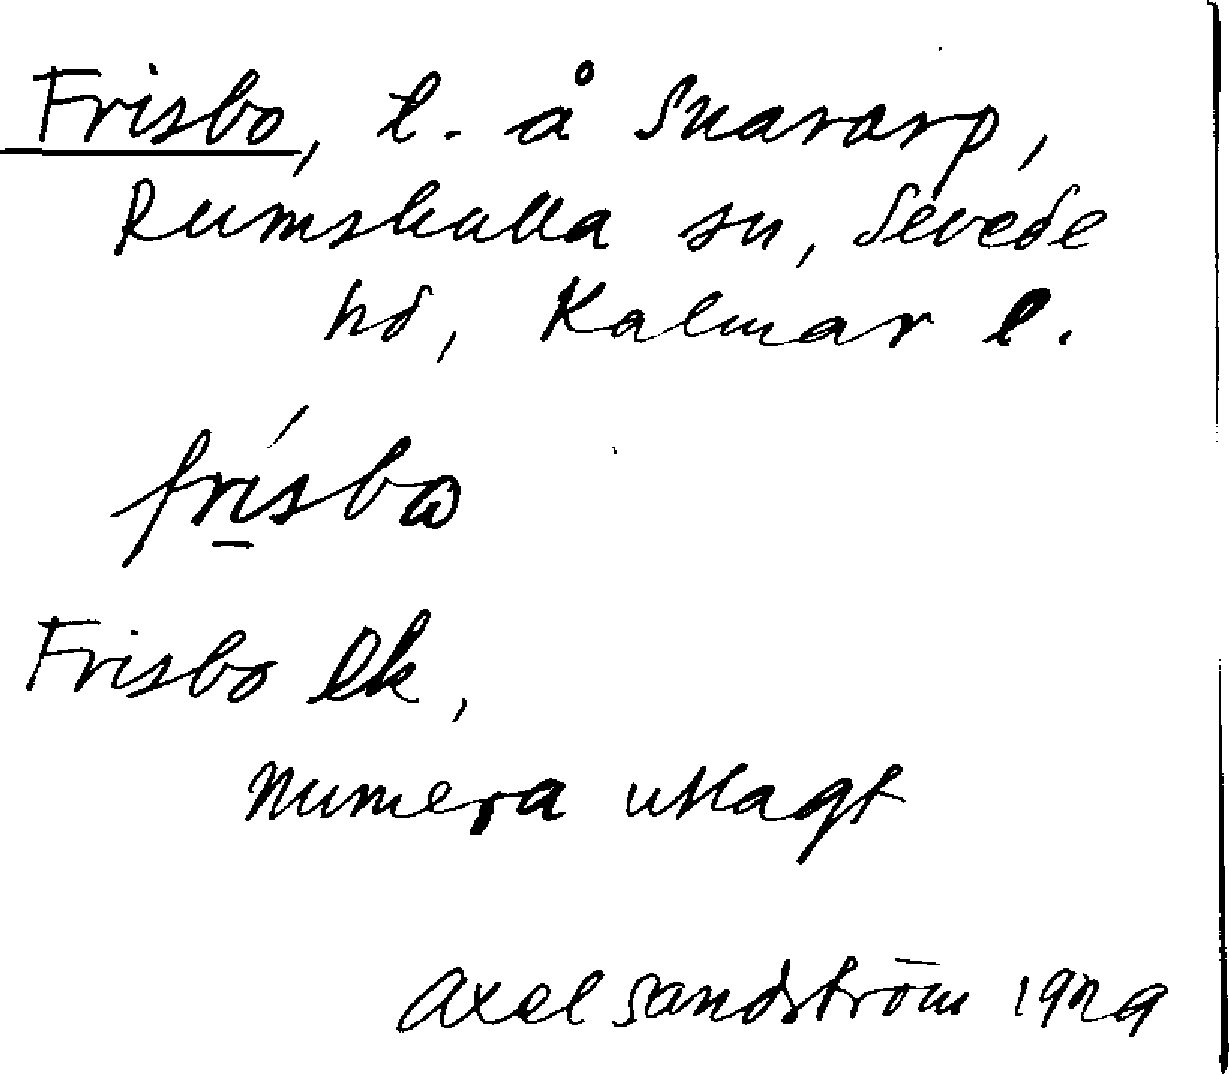 Frisbo, l. å Snararp,
Rumskulla sn, Sevede
hd, Kalmar l.
frisbo
Frisbo Ek,
numera utlagt
Axel Sandström 1929